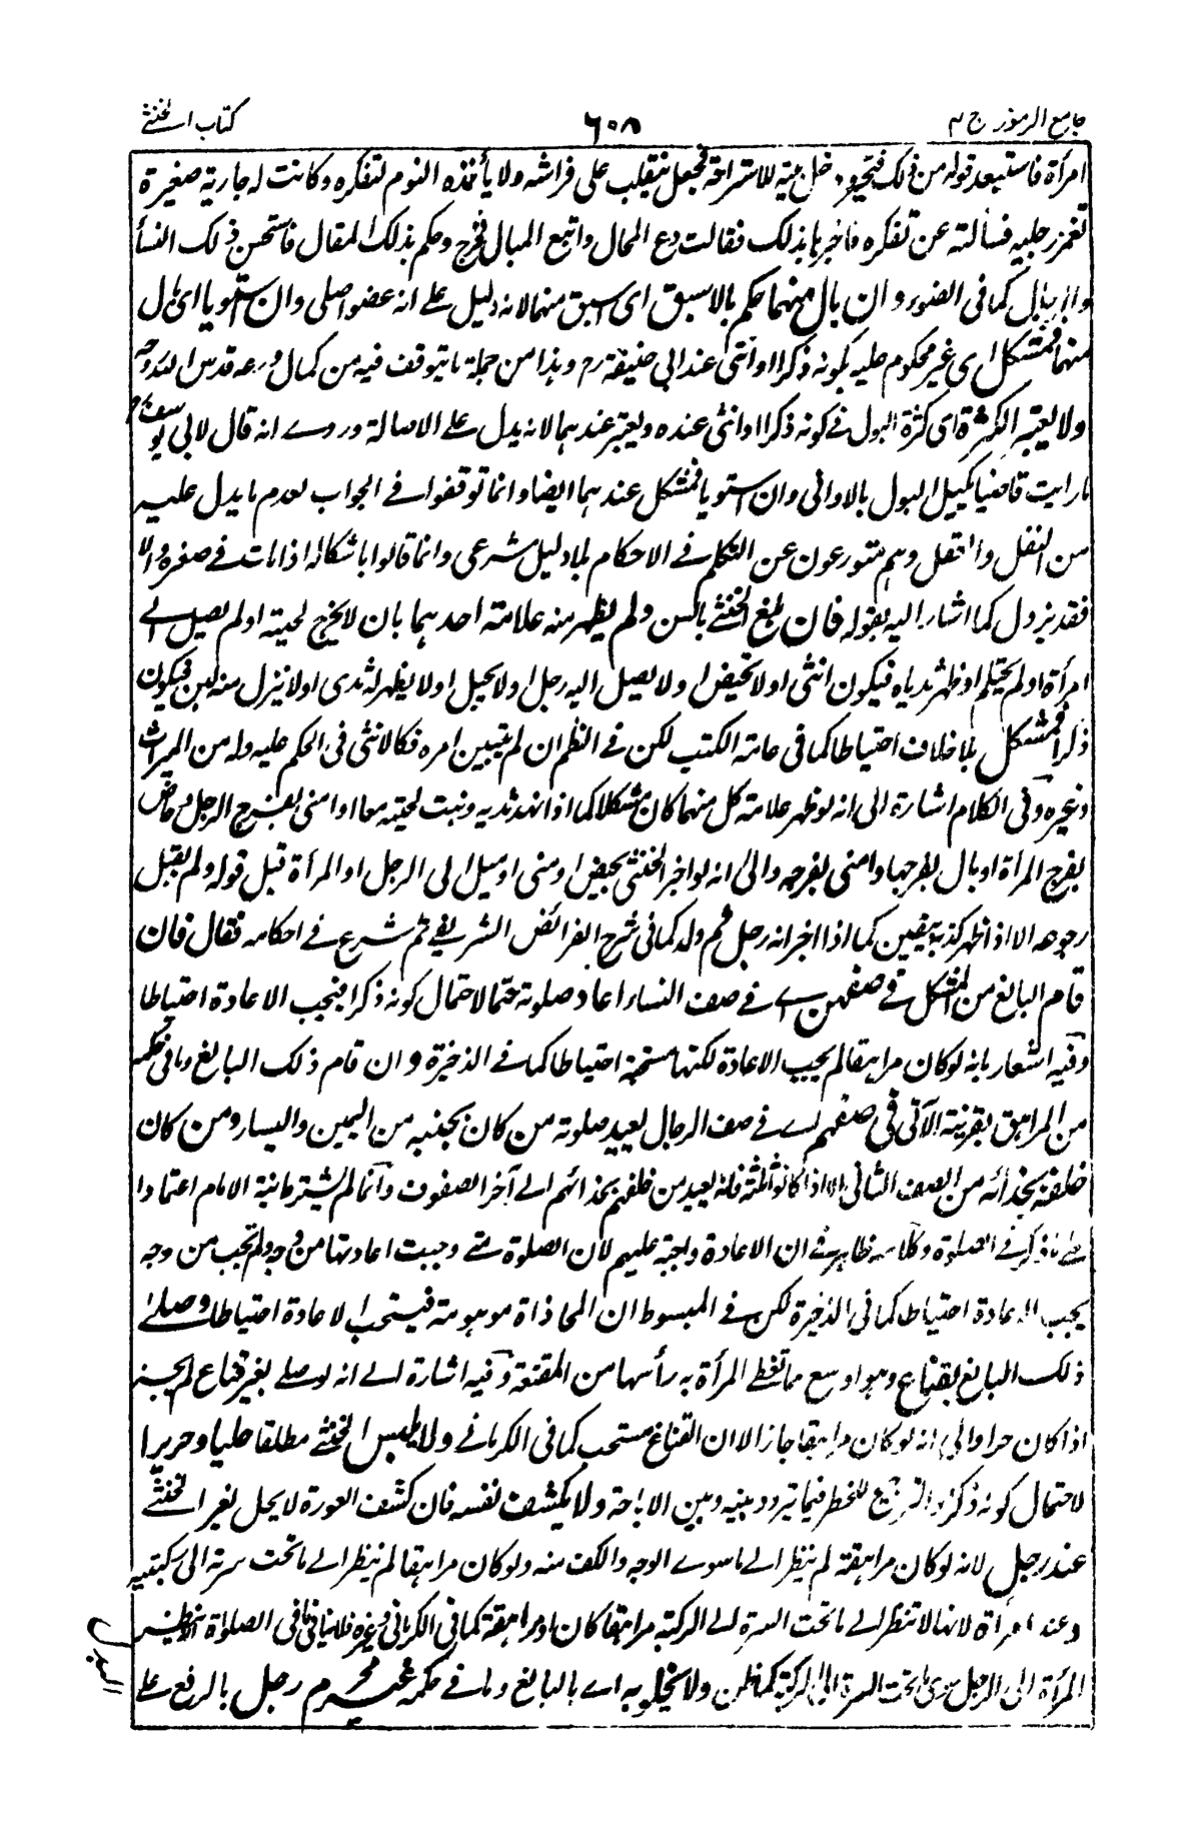 جامع الرموز ج ٣
٦٠٨
كتاب الخنثى
امرأة فاستبعد قوله من ذلك فتحير ودخل بيته للاستراحة فجعل يتقلب على فراشه ولا يأخذه النوم لتفكره وكانت له جارية صغيرة
تغمز رجليه فسألته عن تفكره فاخبرها بذلك فقالت دع المحال واتبع المبال فخرج وحكم بذلك المقال فاستحسن ذلك النسأ
والرجال كما فى الضوء و ان بال منهما حكم بالاسبق اى اسبق منهما لانه دليل على انه عضو اصلى وان استويا اى بال
منهما فمشكل اى غير محكوم عليه بكونه ذكرا او انثى عند ابى حنيفة رح وهذا من جملة ما يتوقف فيه من كمال ورعه قدس الله روحه
ولا يعتبر الكثرة اى كثرة البول فى كونه ذكرا او انثى عنده ويعتبر عندهما لانه يدل على الاصالة وروى انه قال لابى يوسف رح
ما رايت قاضيا يكيل البول بالاوانى وان استويا فمشكل عندهما ايضا وانما توقفوا فى الجواب لعدم ما يدل عليه
من النقل والعقل وهم متورعون عن التكلم فى الاحكام بلا دليل شرعى وانما قالوا باشكاله اذا مات فى صغره والا
فقد يزول كما اشار اليه بقوله فان بلغ الخنثى بالسن ولم يظهر منه علامة احدهما بان لا يخرج لحيته او لم يصل الى
امرأة او لم يحتلم او ظهر ثدياه فيكون انثى او لا تحيض او لا يصل اليه رجل او لا يحبل او لا يظهر له ثدى او لا ينزل منه لبن فيكون
ذكرا فمشكل بلا خلاف احتياطا كما فى عامة الكتب لكن فى النظم ان لم يتبين امره فكالانثى فى الحكم عليه وله من الميراث
وغيره وفى الكلام اشارة الى انه لو ظهر علامة كل منهما كان مشكلا كما اذا نهد ثديه ونبت لحيته معا او امنى بفرج الرجل وحاض
بفرج المرأة او بال بفرجها وامنى بفرجه والى انه لو اخبر الخنثى بحيض او منى او ميل الى الرجل او المرأة قبل قوله ولم يقبل
رجوعه الا اذا ظهر كذبه بيقين كما اذا اخبر انه رجل ثم ولد كما فى شرح الفرائض الشريفى ثم شرع فى احكامه فقال فان
قام البالغ من المشكل فى صفهن اى فى صف النساء اعاد صلوته حتما لاحتمال كونه ذكرا فيجب الاعادة احتياطا
وفيه اشعار بانه لو كان مراهقا لم يجب الاعادة لكنها مستحبة احتياطا كما فى الذخيرة و ان قام ذلك البالغ وما فى حكمه
من المراهق بقرينة الآتى فى صفهم اى فى صف الرجال يعيد صلوته من كان بجنبه من اليمين واليسار ومن كان
خلفه بحذائه من الصف الثانى الا اذا كانوا ثلثة فانه يعيد من خلفهم بحذائهم الى آخر الصفوف وانما لم يشترط نية الامام اعتمادا
على ما ذكر فى الصلوة وكلامه ظاهر فى ان الاعادة واجبة عليهم لان الصلوة متى وجبت اعادتها من وجه ولم تجب من وجه
يجب الاعادة احتياطا كما فى الذخيرة لكن فى المبسوط ان المحاذاة موهومة فيستحب الاعادة احتياطا وصلى
ذلك البالغ بقناع وهو اوسع مما تغطى المرأة به رأسها من المقنعة وفيه اشارة الى انه لو صلى بغير قناع لم يجز
اذا كان حرا والى انه لو كان مراهقا جاز الا ان القناع مستحب كما فى الكرمانى و لا يلبس الخنثى مطلقا حليا وحريرا
لاحتمال كونه ذكرا والترجيح للخطر فيما تردد بينه وبين الاباحة ولا يكشف نفسه فان كشف العورة لا يحل لغير الخنثى
عند رجل لانه لو كان مراهقة لم ينظر الى ما سوى الوجه والكف منه ولو كان مراهقا لم ينظر الى ما تحت سرته الى ركبتيه
وعند امرأة لانها لا تنظر الى ما تحت السرة الى الركبة مراهقا كان او مراهقة كما فى الكرمانى وغيره فلا ينافى ما فى الصلوة انه ينظر
المرأة الى الرجل سوى ما تحت السرة الى الركبة كما ظن ولا يخلو به اى بالبالغ وما فى حكمه غير محرم رجل بالرفع على
البدل